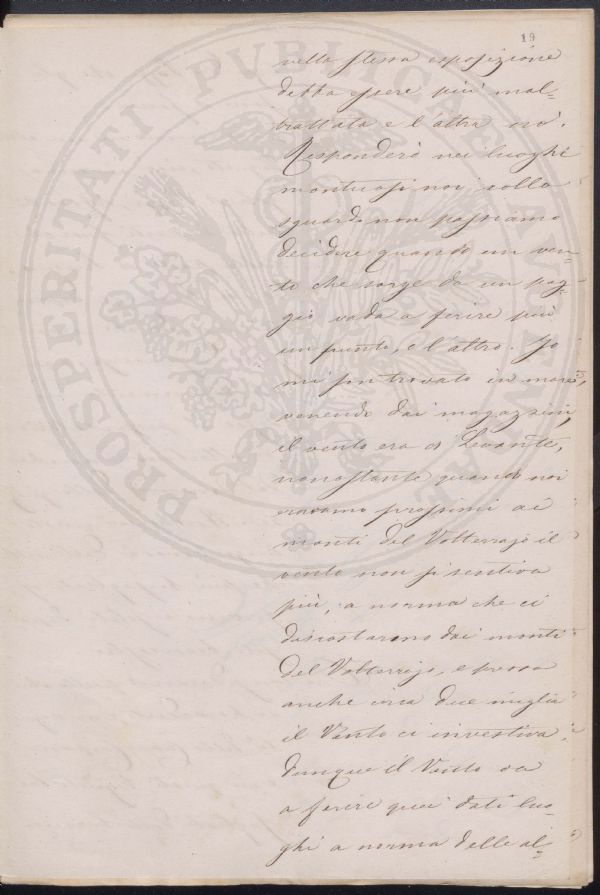 19
nella stessa esposizione
debba essere più mal=
trattata e l'altra no.
Risponderò nei luoghi
montuosi noi collo
sguardo non possiamo
decidere quando un ven=
to che sorge da un pog=
gio vada a ferire più
un punto, e l'altro. Io
mi son trovato in mare,
venendo dai magazzini,
il vento era di Levante,
nonostante quando noi
eravamo prossimi ai
monti del Volterrajo il
vento non si sentiva
più, a norma che ci
discostarono dai monti
del Volterrajo, e presso
anche circa due miglia
il Vento ci investiva.
dunque il Vento va
a ferire quei dati luo=
ghi a norma delle al=
PROSPERITATI PUBLICAE AUGENDAE